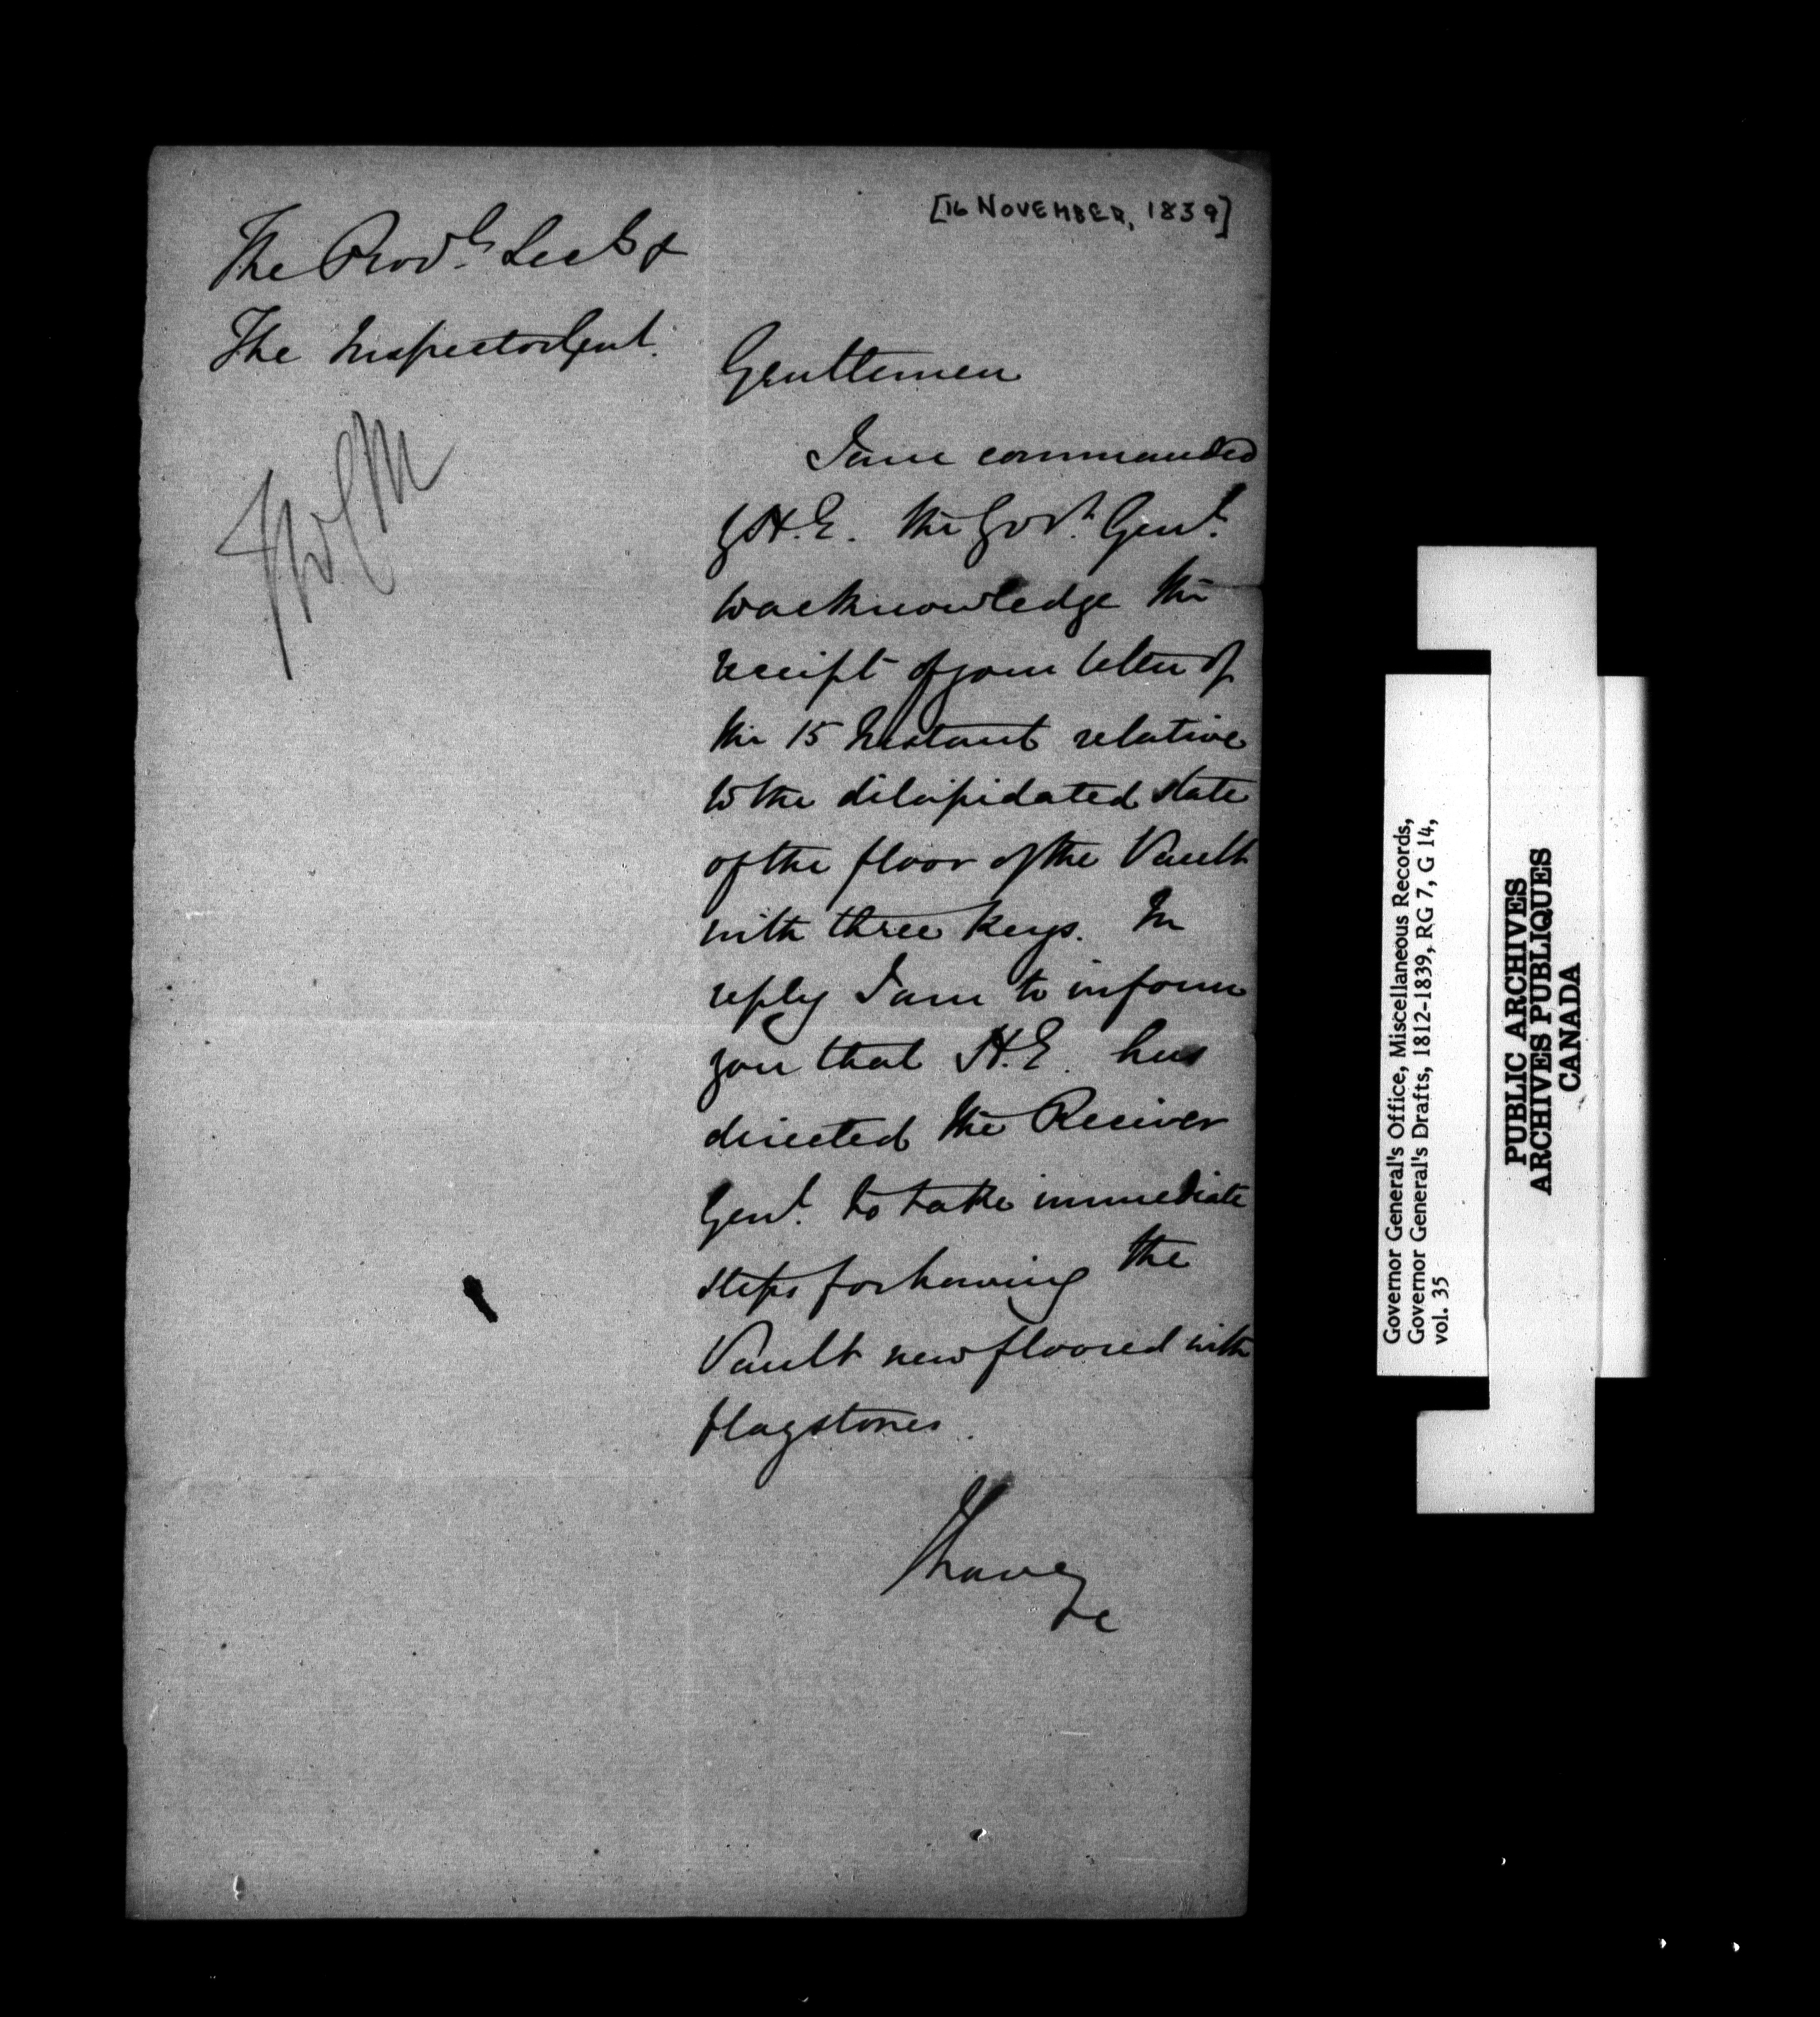 [16 NOVEMBER, 1839]
The Prov.l Sec.y &
The Inspector Genl.
Gentlemen
I am commanded
by H.E. the Govr. Genl.
to acknowledge the
receipt of your letter of
the 15 Instant relative
to the dilapidated state
of the floor of the Vault
with three keys. In
reply I am to inform
you that H.E. has
directed the Receiver
Genl. to take immediate
steps for having the
Vault new floored with
flagstones.
I have
&c
Governor General's Office, Miscellaneous Records,
Governor General's Drafts, 1812-1839, RG 7, G 14,
vol. 35
PUBLIC ARCHIVES
ARCHIVES PUBLIQUES
CANADA